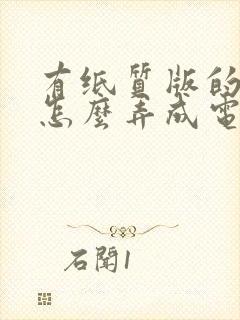 有纸质版的
怎麼弄成電
石聞1